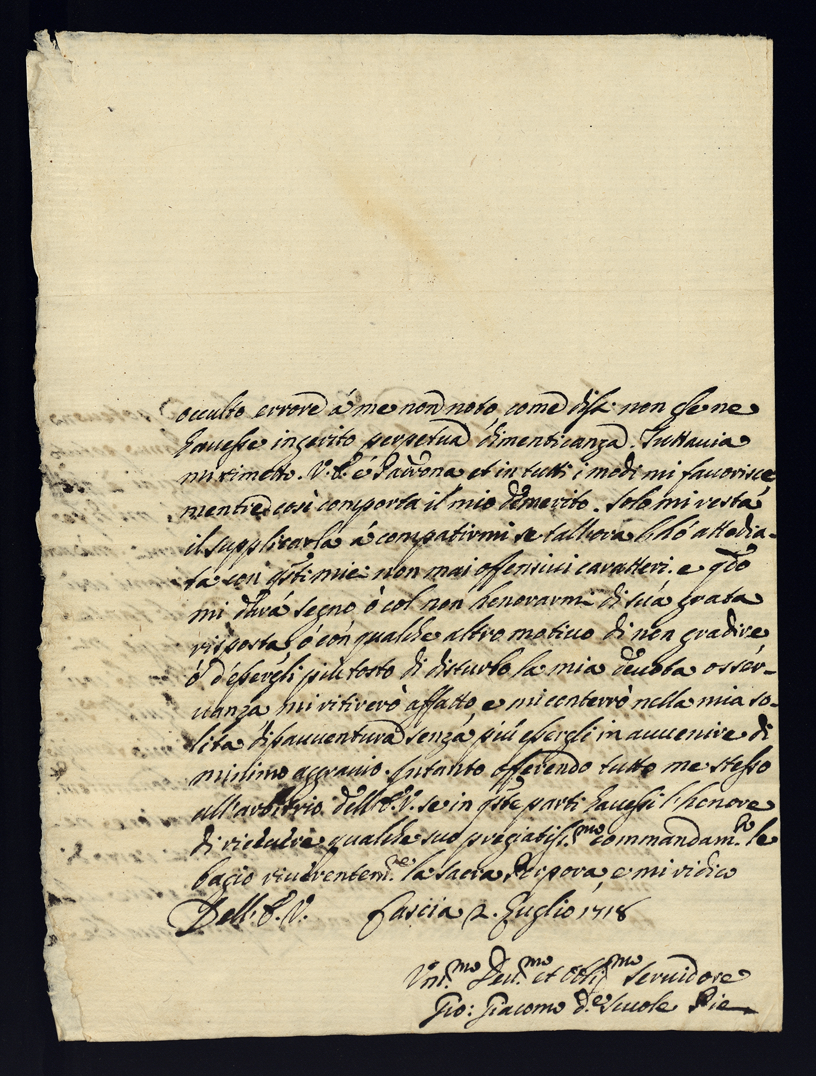 occulto errore á me non noto come disi non che ne
havesse ingerito perpetua dimenticanza. Tuttavia
mi rimetto. V. E. é Padrona et in tutti i modi mi favorisce
mentre cosi comporta il mio demerito. Solo mi resta
il supplicarla á compatirmi se talhora l'hó attedia-
ta con q.sti miei non mai offensivi caratteri, e q.do
mi dará segno ó col non honorarmi di sua grata
risposta ó con qualche altro motivo di non gradire
ó d'essergli piu tosto di disturbo la mia devota osser-
vanza mi ritireró affatto e mi conterró nella mia so-
lita disavventura senza piú essergli in avvenire di
minimo aggravio. Intanto offerendo tutto me stesso
all'arbitrio dell'E. V. se in q.ste parti havessi l'honore
di ricevere qualche suo pregiatiss.mo commandam.to le
bacio riverentem.te la Sacra Porpora, e mi ridico
Dell'E. V. Fascia 2. Luglio 1718
Um.mo Dev.mo et Obli.mo Servidore
Gio: Giacomo d.e Scuole Pie